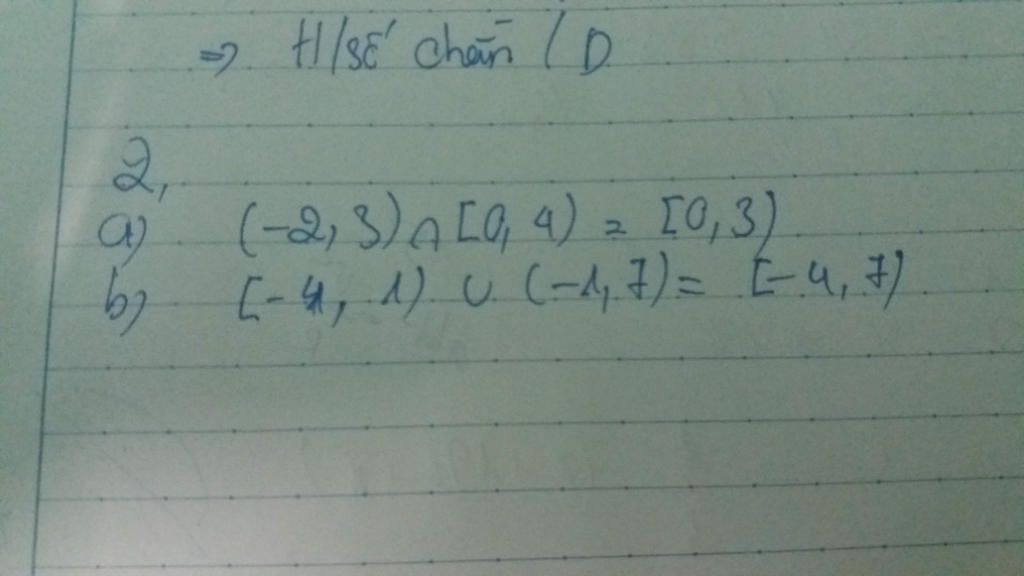 => H/số chẵn / D
2,
a) (-2, 3) ∩ [0, 4) = [0, 3)
b) [-4, 1) ∪ (-1, 7) = [-4, 7)